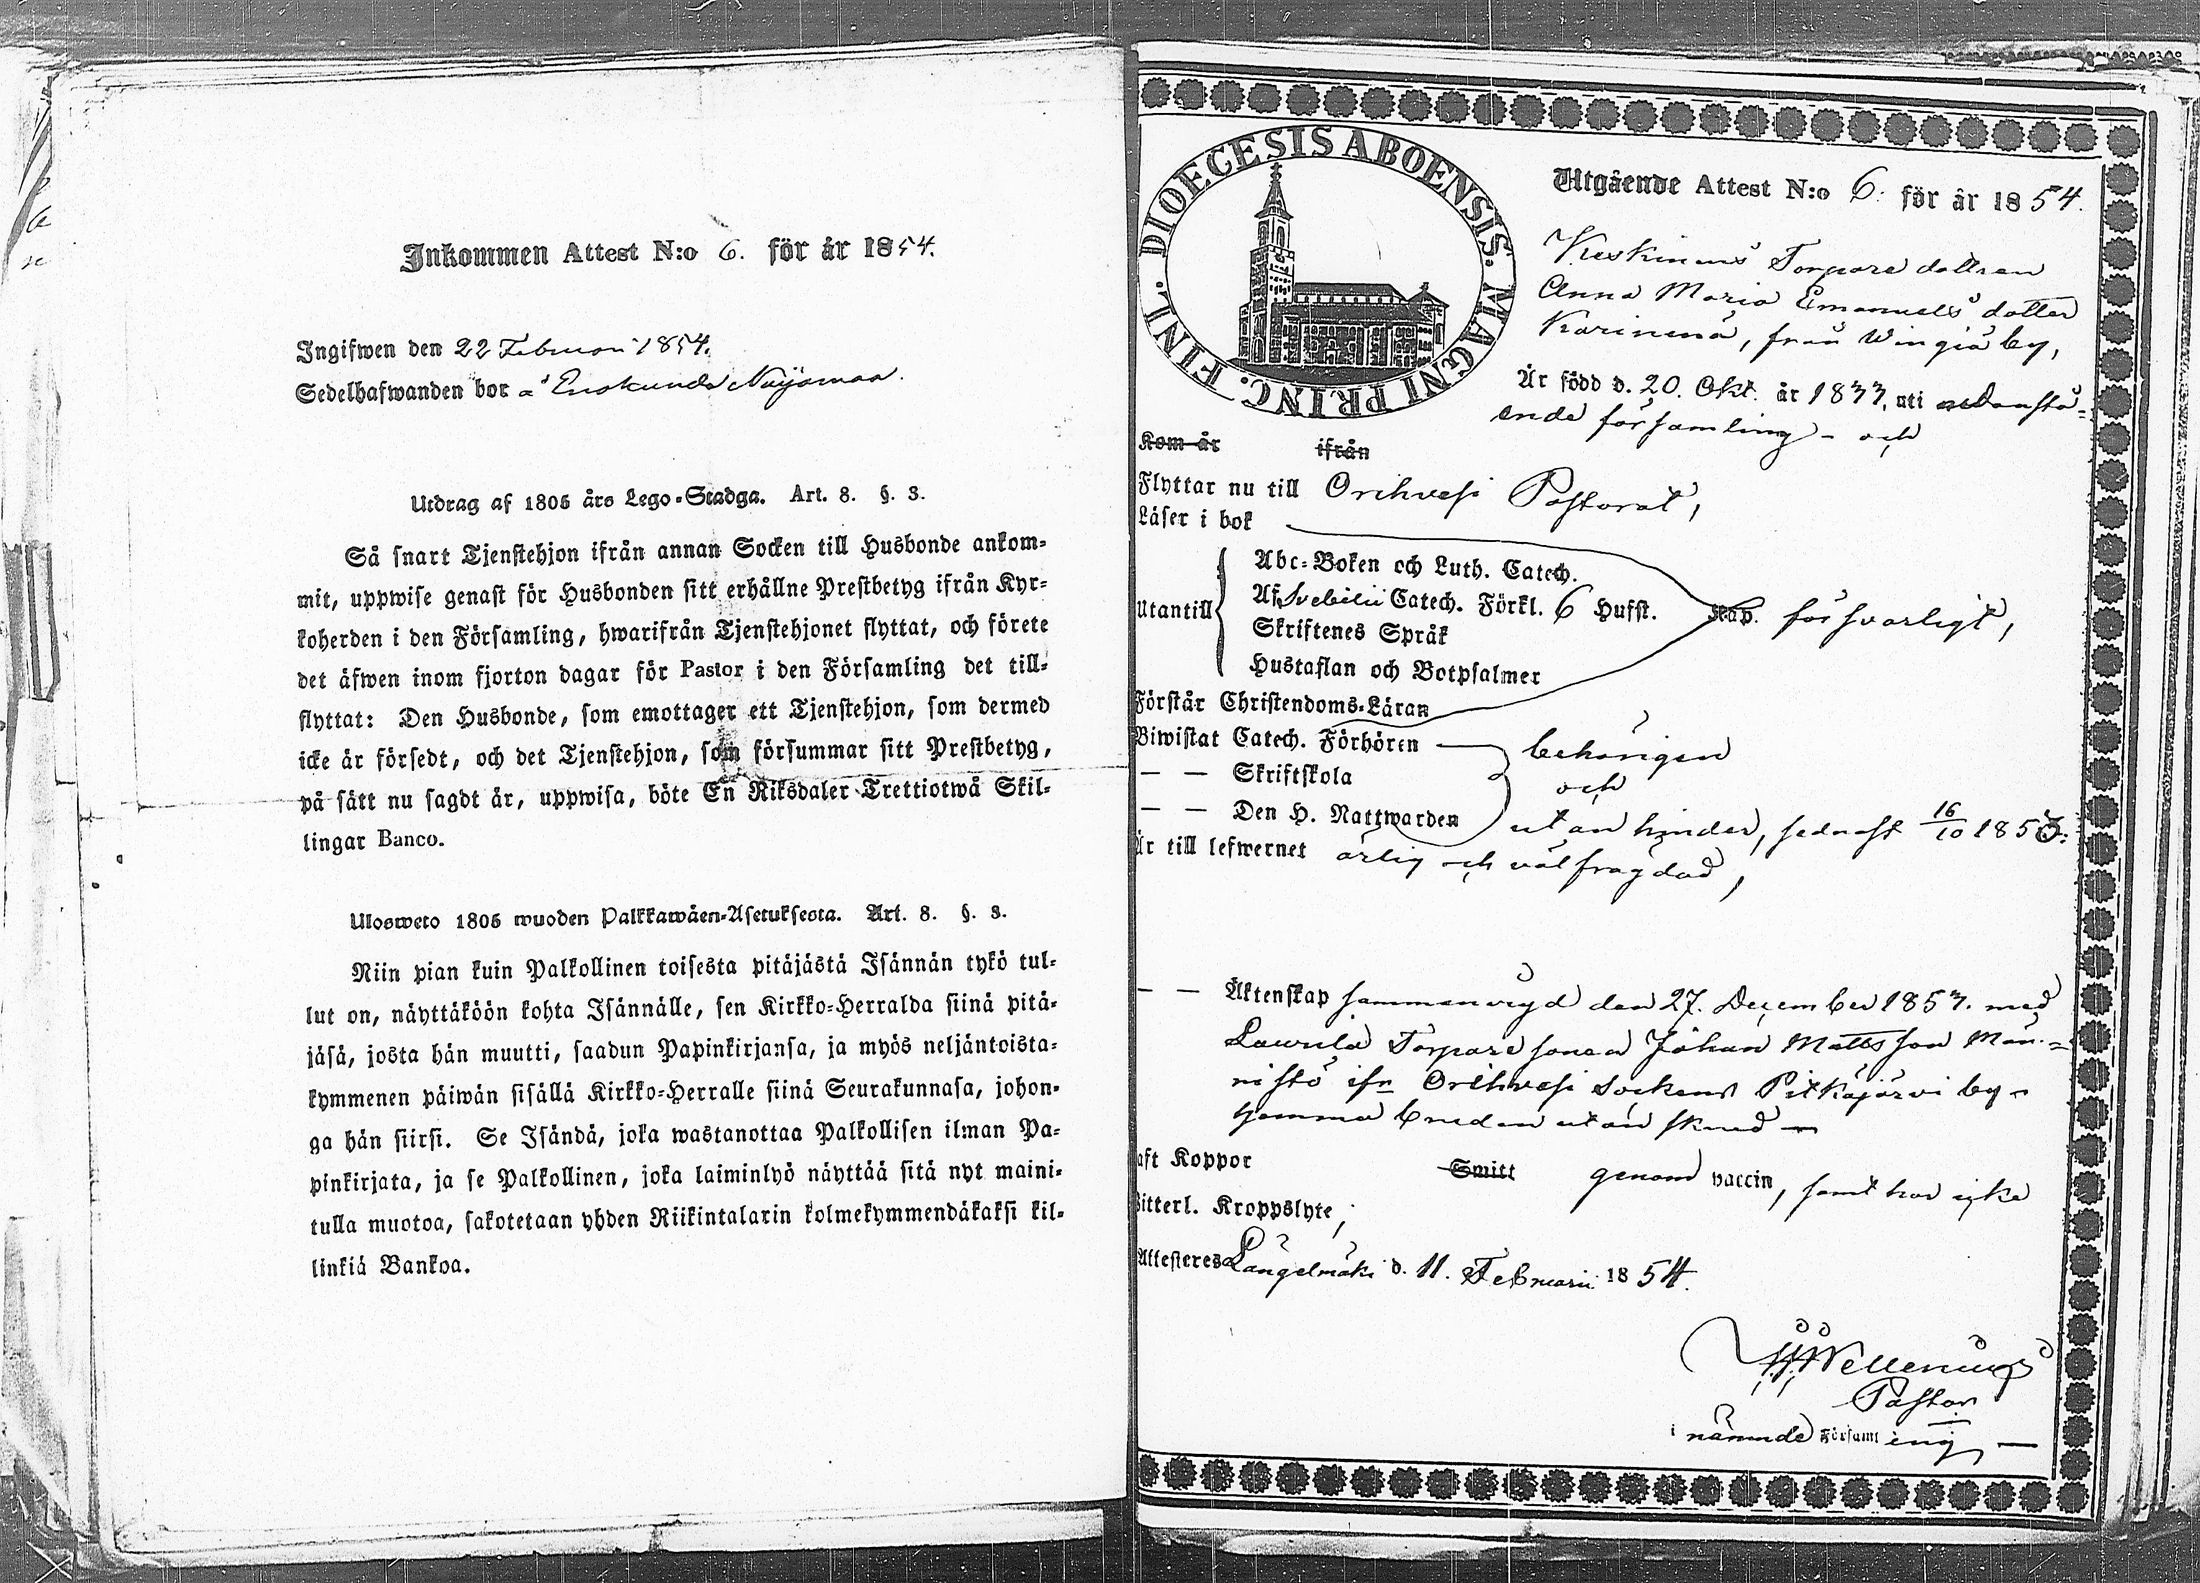 Inkommen Attest N:o 6. för år 1854.
Ingifwen den 22 Februari 1854.
Sedelhafwanden bor å Enokunda Nuijamaa.
Utdrag af 1805 års Lego-Stadga. Art. 8. §. 3.
Så snart Tjenstehjon ifrån annan Socken till Husbonde ankom-
mit, uppwise genast för Husbonden sitt erhållne Prestbetyg ifrån Kyr-
koherden i den Församling, hwarifrån Tjenstehjonet flyttat, och förete
det äfwen inom fjorton dagar för Pastor i den Församling det till-
flyttat: Den Husbonde, som emottager ett Tjenstehjon, som dermed
icke är försedt, och det Tjenstehjon, som försummar sitt Prestbetyg,
på sätt nu sagdt är, uppwisa, böte En Riksdaler Trettiotwå Skil-
lingar Banco.
Ulosweto 1805 wuoden Palkkawäen-Asetuksesta. Art. 8. §. 3.
Niin pian kuin Palkollinen toisesta pitäjästä Isännän tykö tul-
lut on, näyttäköön kohta Isännälle, sen Kirkko-Herralda siinä pitä-
jäsä, josta hän muutti, saadun Papinkirjansa, ja myös neljäntoista-
kymmenen päiwän sisällä Kirkko-Herralle siinä Seurakunnasa, johon-
ga hän siirsi. Se Isändä, joka wastanottaa Palkollisen ilman Pa-
pinkirjata, ja se Palkollinen, joka laiminlyö näyttää sitä nyt maini-
tulla muotoa, sakotetaan yhden Riikintalarin kolmekymmendäkaksi kil-
linkiä Bankoa.
DIOECESIS ABOENSIS. MAGNI PRINC. FINL.
Utgående Attest N:o 6: för år 1854.
Keskinens Torpare dottren
Anna Maria Emanuels dotter
Karinena, från Wingiä by,
Är född d. 20. Okt. år 1833, uti nedanstå-
ende församling - och
Kom år ifrån
Flyttar nu till Orihvesi Pastorat,
Läser i bok
Utantill
Abc-Boken och Luth. Catech.
Af Svebilii Catech. Förkl. 6 Hufst. Kap. försvarligt,
Skriftenes Språk
Hustaflan och Botpsalmer
Förstår Christendoms-Läran
Biwistat Catech. Förhören behörigen
— — Skriftskola och
— — Den H. Nattwarden utan hinder, sednast 16/10 1853:
Är till lefwernet ärlig och välfrägdad,
— — Äktenskap sammanvigd den 27. December 1853. med
Laurila Torpare sonen Johan Mattsson Män-
nistö ifn Orihvesi Sockens Pitkäjärvi by -
hemma bruden utan skud —
aft Koppor Smitt genom vaccin, samt har icke
Bitterl. Kroppslyte,
Attesteres Längelmäki d. 11. Februarii 1854.
Wellenius
Pastor
i nämnde Församling —